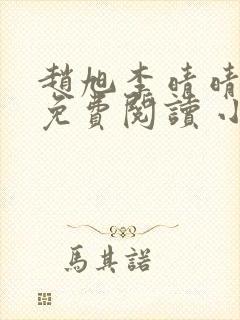 趙旭李晴晴
免費閱讀小
馬其諾